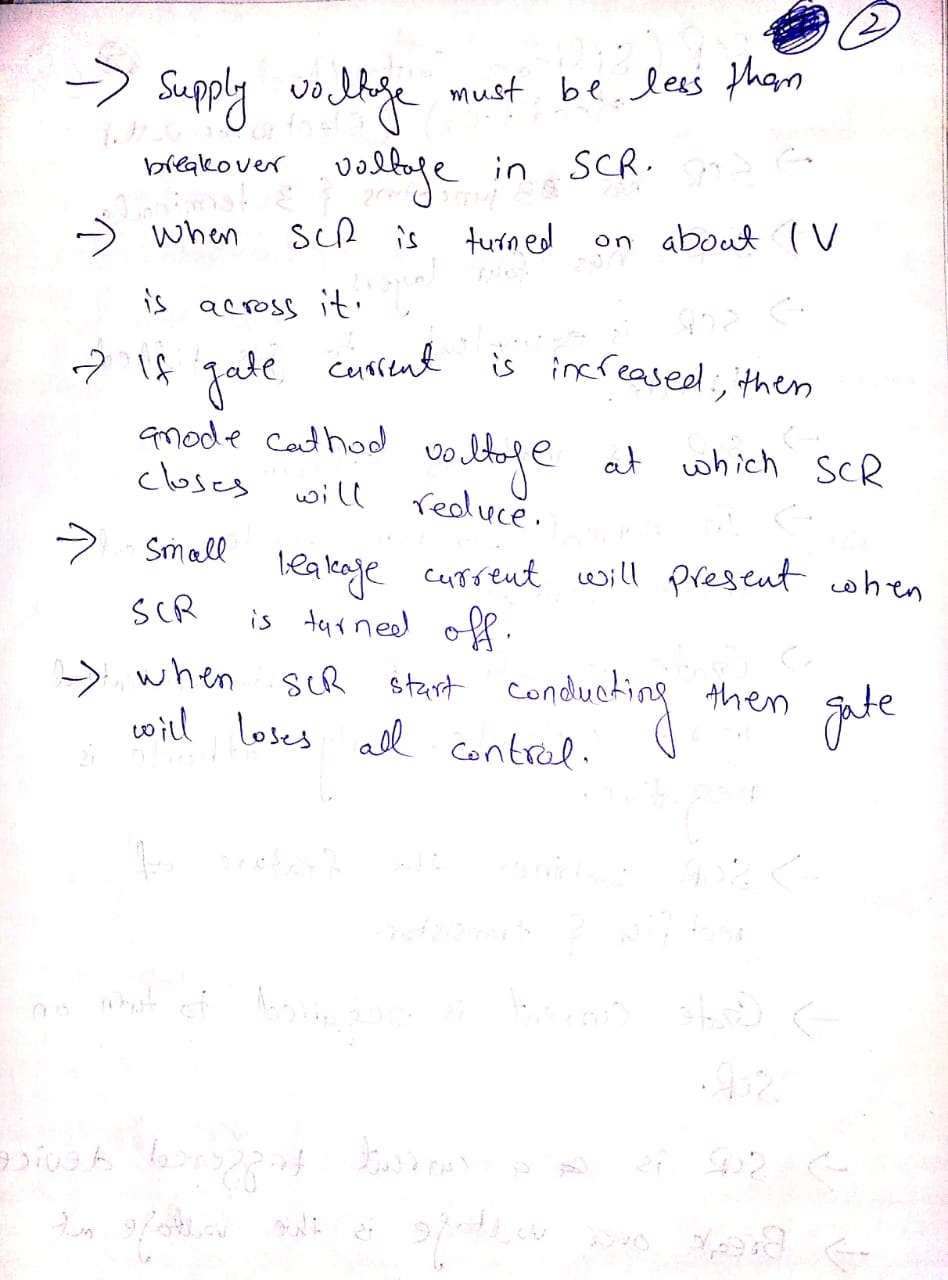 2
→ Supply voltage must be less than
breakover voltage in SCR.
→ When SCR is turned on about 1V
is across it.
→ If gate current is increased, then
anode cathod voltage at which SCR
closes will reduce.
→ Small leakage current will present when
SCR is turned off.
→ when SCR start conducting then gate
will loses all control.